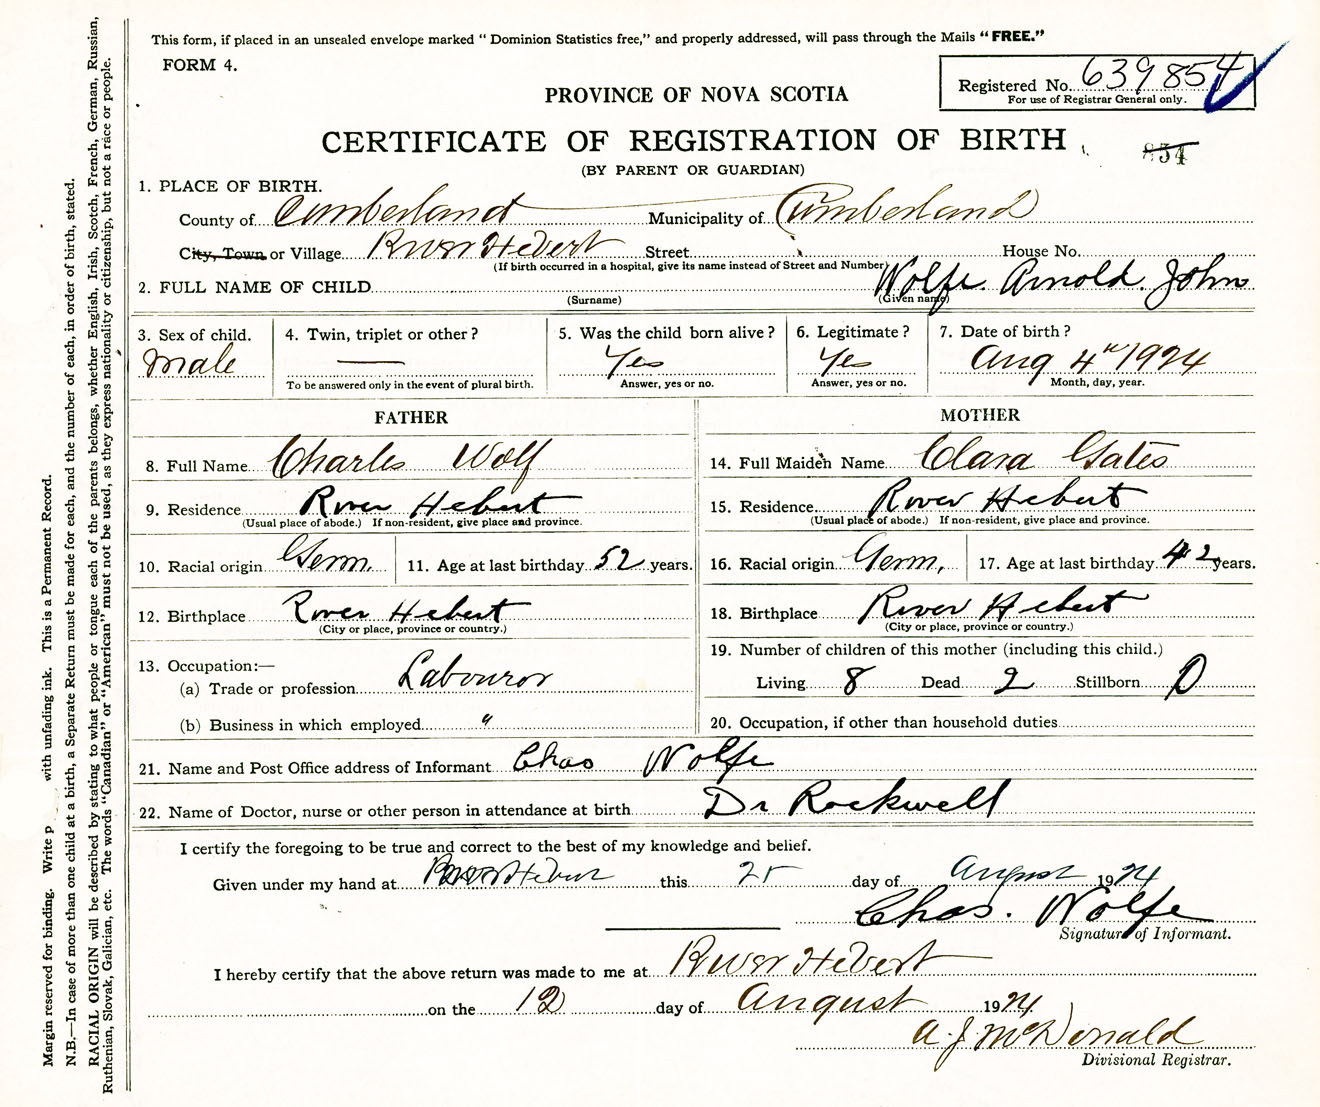 This form, if placed in an unsealed envelope marked “ Dominion Statistics free,” and properly addressed, will pass through the Mails “ FREE.”
FORM 4.
Registered No. 639854
For use of Registrar General only.
PROVINCE OF NOVA SCOTIA
CERTIFICATE OF REGISTRATION OF BIRTH
854
(BY PARENT OR GUARDIAN)
1. PLACE OF BIRTH.
County of Cumberland Municipality of Cumberland
City, Town or Village River Hebert Street House No.
(If birth occurred in a hospital, give its name instead of Street and Number)
2. FULL NAME OF CHILD Wolfe. Arnold. John
(Surname) (Given name)
3. Sex of child. 4. Twin, triplet or other? 5. Was the child born alive? 6. Legitimate? 7. Date of birth?
Male — Yes Yes Aug 4th 1924
To be answered only in the event of plural birth. Answer, yes or no. Answer, yes or no. Month, day, year.
FATHER MOTHER
8. Full Name Charles Wolf 14. Full Maiden Name Clara Gates
9. Residence River Hebert 15. Residence River Hebert
(Usual place of abode.) If non-resident, give place and province. (Usual place of abode.) If non-resident, give place and province.
10. Racial origin Germ. 11. Age at last birthday 52 years. 16. Racial origin Germ. 17. Age at last birthday 42 years.
12. Birthplace River Hebert 18. Birthplace River Hebert
(City or place, province or country.) (City or place, province or country.)
13. Occupation:— 19. Number of children of this mother (including this child.)
(a) Trade or profession Labouror Living 8 Dead 2 Stillborn 0
(b) Business in which employed " 20. Occupation, if other than household duties
21. Name and Post Office address of Informant Chas Wolfe
22. Name of Doctor, nurse or other person in attendance at birth Dr Rockwell
I certify the foregoing to be true and correct to the best of my knowledge and belief.
Given under my hand at River Hebert this 25 day of August 1924
Chas. Wolfe
Signature of Informant.
I hereby certify that the above return was made to me at River Hebert
on the 12 day of August 1924
A. J. McDonald
Divisional Registrar.
Margin reserved for binding. Write p with unfading ink. This is a Permanent Record.
N.B.—In case of more than one child at a birth, a Separate Return must be made for each, and the number of each, in order of birth, stated.
RACIAL ORIGIN will be described by stating to what people or tongue each of the parents belongs, whether English, Irish, Scotch, French, German, Russian,
Ruthenian, Slovak, Galician, etc. The words “Canadian” or “American” must not be used, as they express nationality or citizenship, but not a race or people.